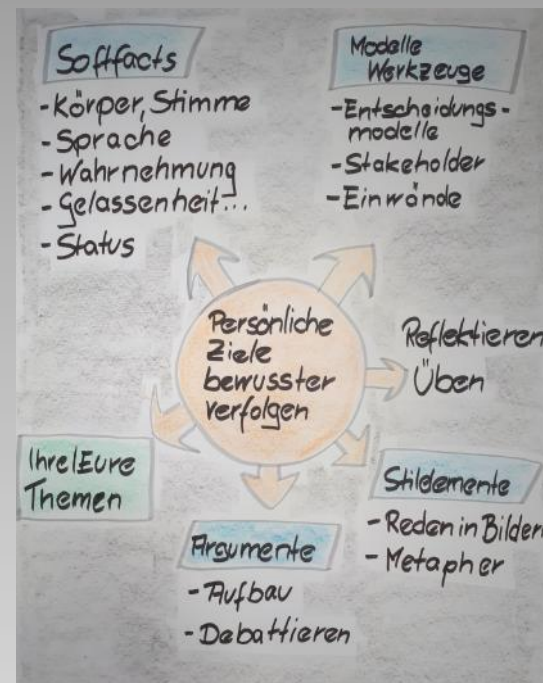 Softfacts
-Körper, Stimme
-Sprache
-Wahrnehmung
-Gelassenheit...
-Status
Modelle
Werkzeuge
-Entscheidungs-
modelle
-Stakeholder
-Einwände
Persönliche
Ziele
bewusster
verfolgen
Reflektieren
Üben
Ihre/Eure
Themen
Stilelemente
-Reden in Bildern
-Metapher
Argumente
-Aufbau
-Debattieren